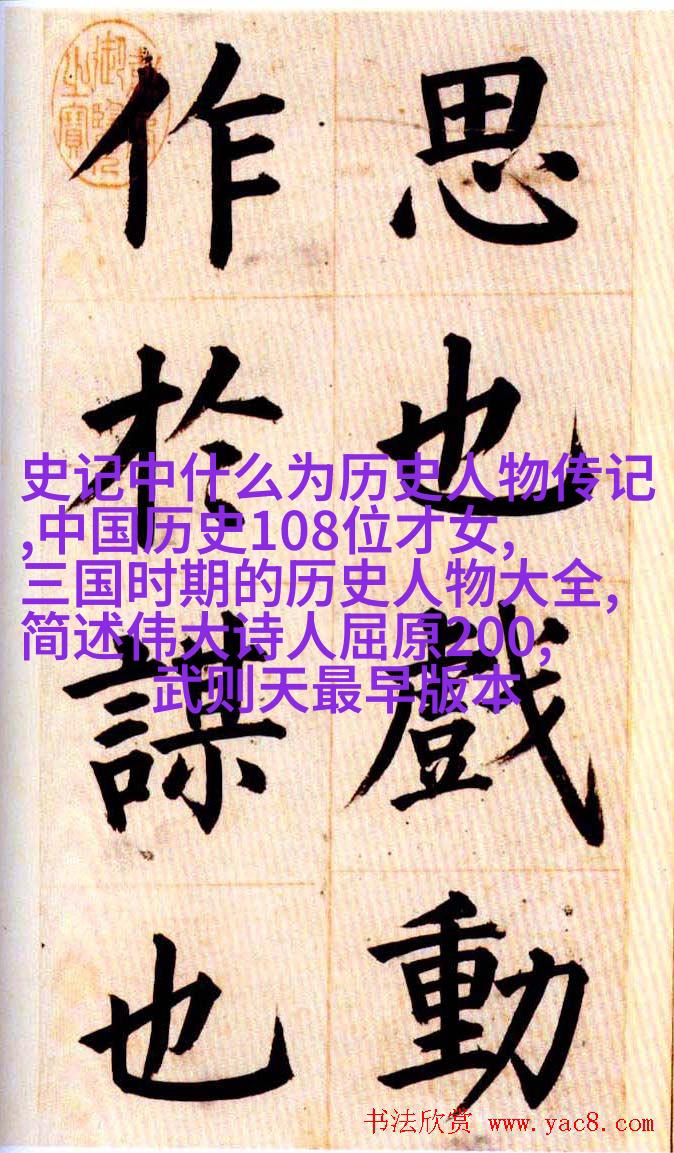 思也戲動
作扵謀也
御覽
之寶
史记中什么为历史人物传记
,中国历史108位才女,
三国时期的历史人物大全,
简述伟大诗人屈原200,
武则天最早版本
书法欣赏 www.yac8.com